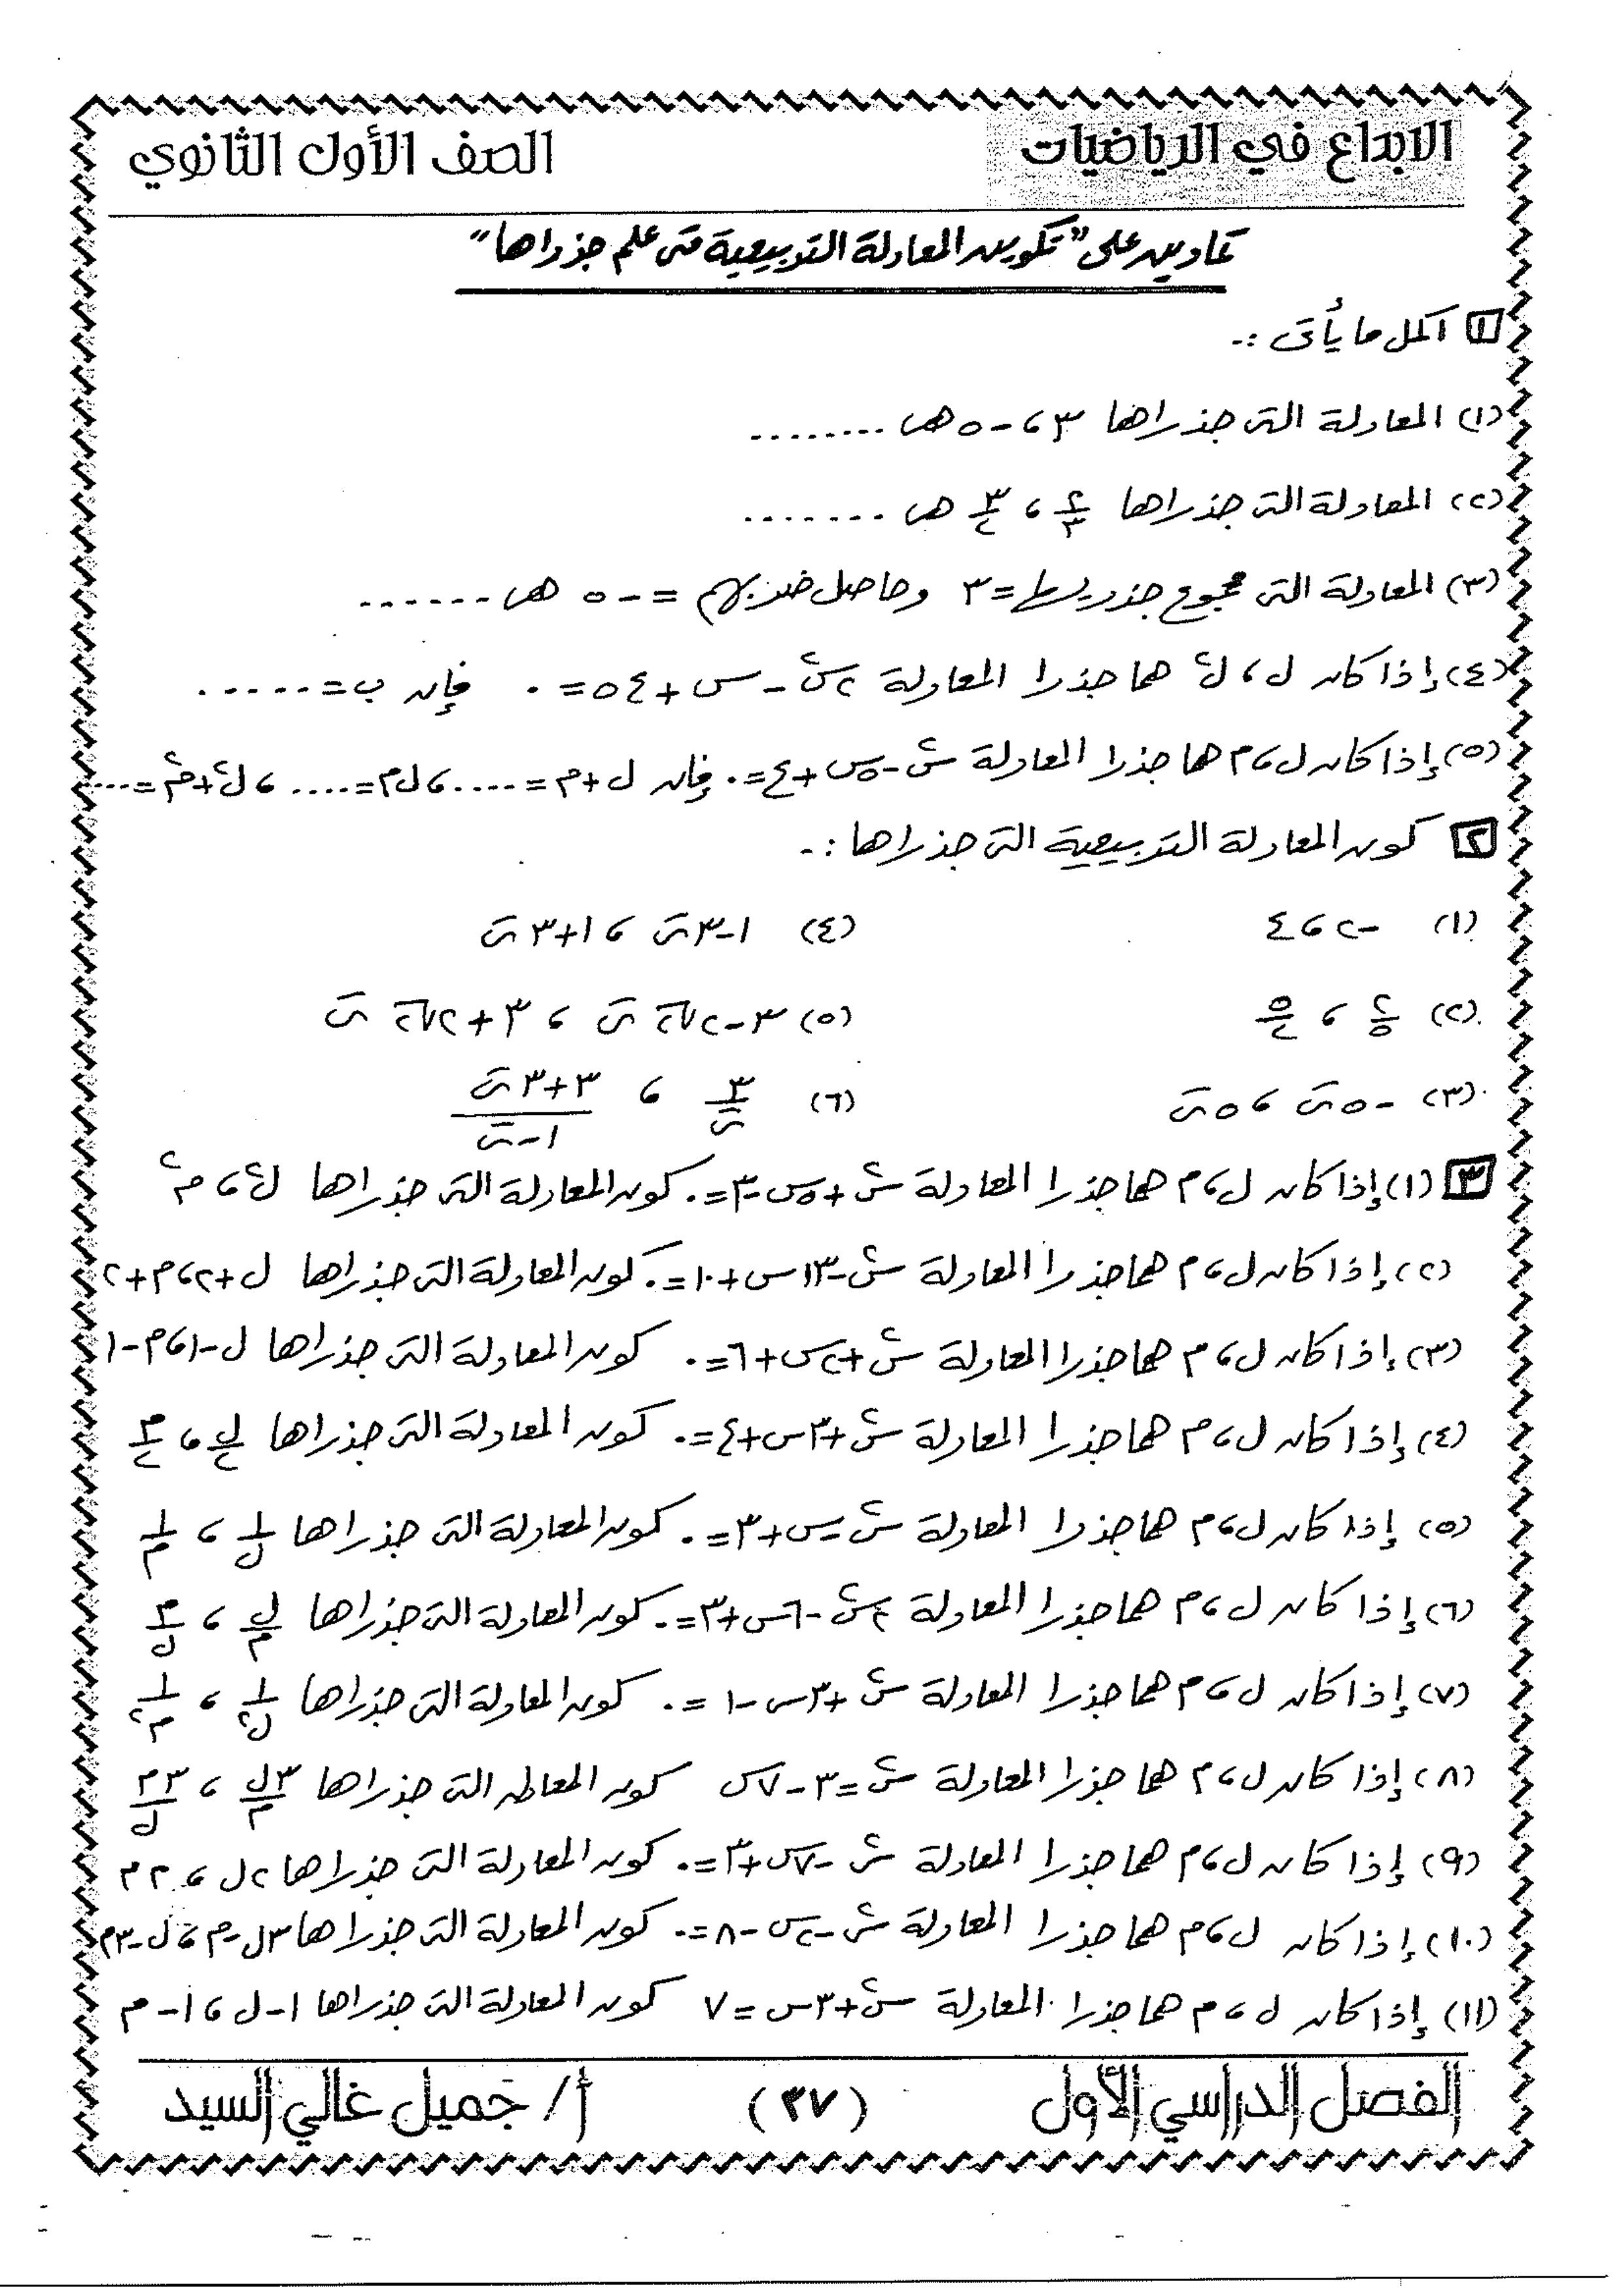 الابداع في الرياضيات
الصف الأول الثانوي
تمارين على "تكوين المعادلة التربيعية متى علم جذراها"
١ اكمل ما يأتى :-
(١) المعادلة التى جذراها ٣ ، -٥ هى ........
(٢) المعادلة التى جذراها ٢/٣ ، ٣/٢ هى .......
(٣) المعادلة التى مجموع جذريها = ٣ وحاصل ضربهم = -٥ هى ......
(٤) إذا كان ل ، ل٢ هما جذرا المعادلة ٢س٢ - س + ٥٤ = ٠ فإن ب = .....
(٥) إذا كان ل ، م هما جذرا المعادلة س٢ - ٥س + ٤ = ٠ فإن ل + م = .... ، ل م = .... ، ل٢ + م٢ = ....
٢ كون المعادلة التربيعية التى جذراها :-
(١) -٢ ، ٤
(٤) ١ - ٣ت ، ١ + ٣ت
(٢) ٢/٥ ، ٥/٢
(٥) ٣ - ٢√٢ ت ، ٣ + ٢√٢ ت
(٣) -٥ت ، ٥ت
(٦) ٣/ت ، (٣ + ٣ت)/(١ - ت)
٣ (١) إذا كان ل ، م هما جذرا المعادلة س٢ + ٥س - ٣ = ٠ كون المعادلة التى جذراها ل٢ ، م٢
(٢) إذا كان ل ، م هما جذرا المعادلة س٢ - ١٣س + ١٠ = ٠ كون المعادلة التى جذراها ل + ٢ ، م + ٢
(٣) إذا كان ل ، م هما جذرا المعادلة س٢ + ٢س + ٦ = ٠ كون المعادلة التى جذراها ل - ١ ، م - ١
(٤) إذا كان ل ، م هما جذرا المعادلة س٢ + ٣س + ٤ = ٠ كون المعادلة التى جذراها ل/٢ ، م/٢
(٥) إذا كان ل ، م هما جذرا المعادلة كون المعادلة التى جذراها ١/ل ، ١/م
(٦) إذا كان ل ، م هما جذرا المعادلة ٢س٢ - ٦س + ٣ = ٠ كون المعادلة التى جذراها ل/م ، م/ل
(٧) إذا كان ل ، م هما جذرا المعادلة س٢ + ٣س - ١ = ٠ كون المعادلة التى جذراها ١/ل٢ ، ١/م٢
(٨) إذا كان ل ، م هما جذرا المعادلة س٢ = ٣ - ٧س كون المعادلة التى جذراها ٣ل/م ، ٣م/ل
(٩) إذا كان ل ، م هما جذرا المعادلة س٢ - ٧س + ٣ = ٠ كون المعادلة التى جذراها ٢ل ، ٢م
(١٠) إذا كان ل ، م هما جذرا المعادلة س٢ - ٢س - ٨ = ٠ كون المعادلة التى جذراها ٣ل - م ، ل - ٣م
(١١) إذا كان ل ، م هما جذرا المعادلة س٢ + ٣س = ٧ كون المعادلة التى جذراها ١ - ل ، ١ - م
الفصل الدراسي الأول
(٣٧)
أ/ جميل غالي السيد